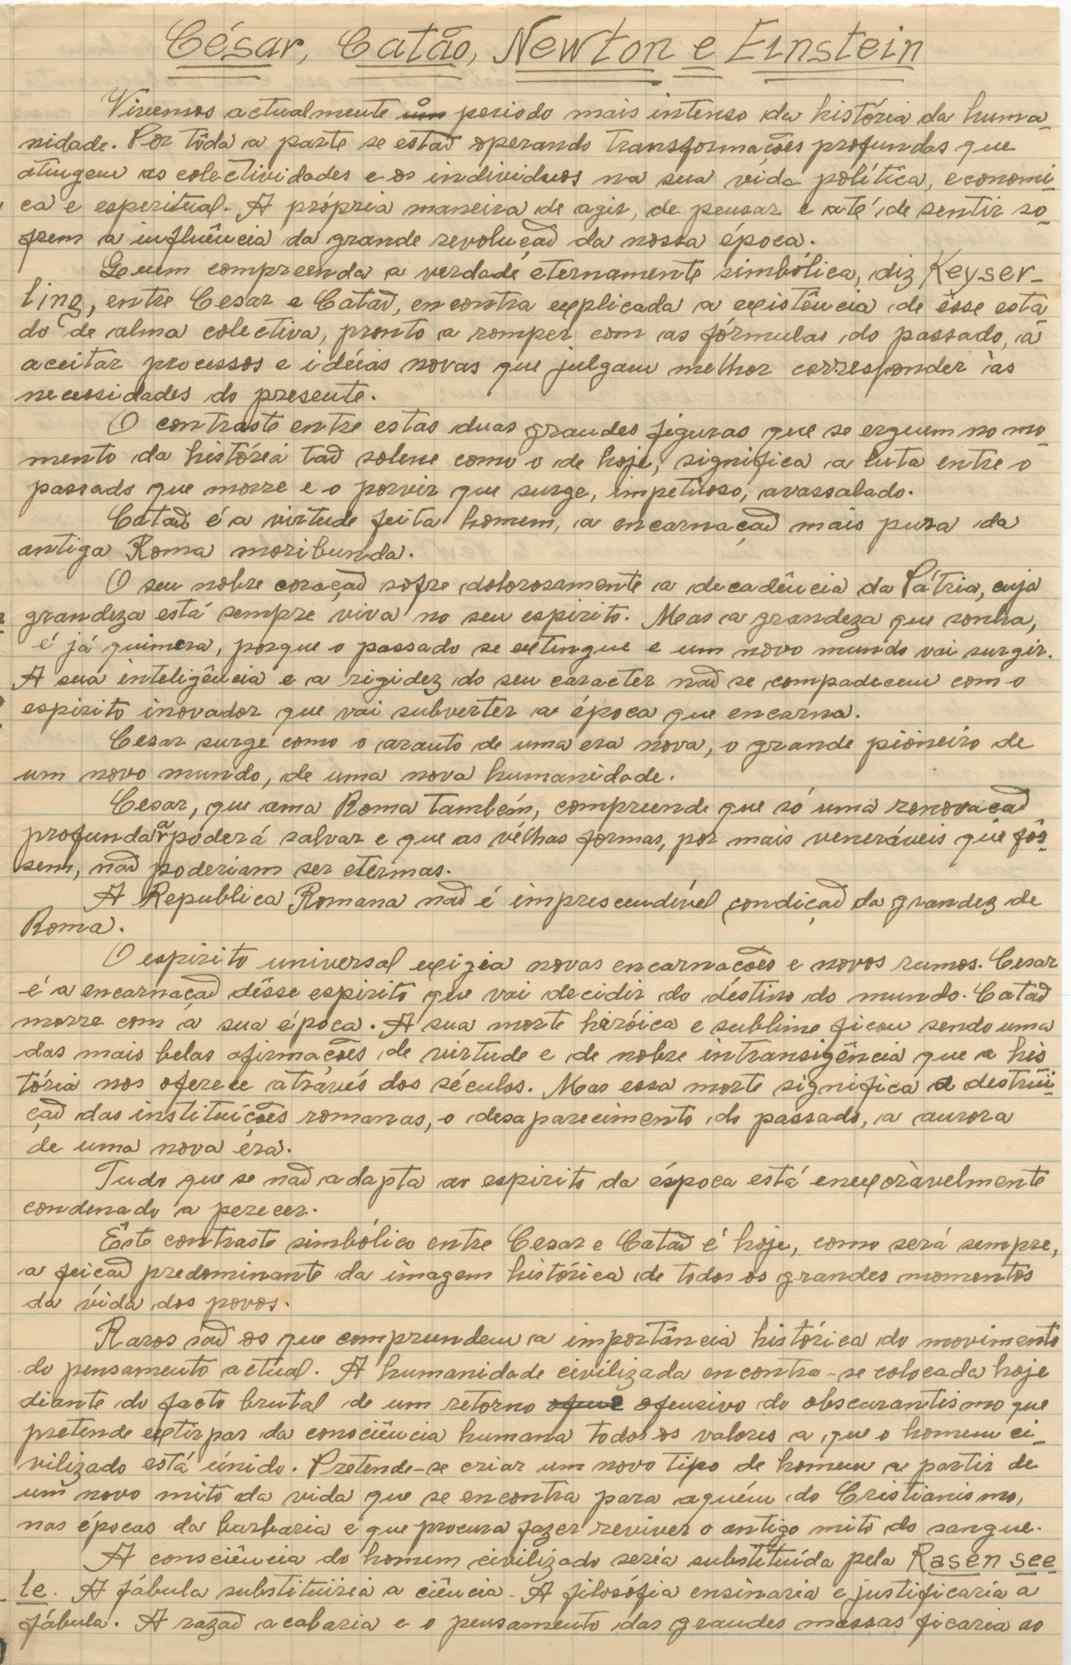 César, Catão, Newton e Einstein
Vivemos actualmente o periodo mais intenso da história da huma-
nidade. Por tôda a parte se estaõ operando transformações profundas que
atingem as colectividades e os individuos na sua vida política, economi-
ca e espiritual. A própria maneira de agir, de pensar e até de sentir so-
frem a influência da grande revoluçaõ da nossa época.
Quem compreenda a verdade eternamente simbólica, diz Keyser-
ling, entre Cesar e Cataõ, encontra explicada a existência de êsse esta
do de alma colectiva, pronto a romper com as fórmulas do passado, a
aceitar processos e idéias novas que julgam melhor corresponder às
necessidades do presente.
O contraste entre estas duas grandes figuras que se erguem no mo-
mento da história taõ solene como o de hoje, significa a luta entre o
passado que morre e o porvir que surge, impetuoso, avassalado.
Cataõ é a virtude feita homem, a encarnaçaõ mais pura da
antiga Roma moribunda.
O seu nobre coraçaõ sofre dolorosamente a decadência da Pátria, cuja
grandeza está sempre viva no seu espirito. Mas a grandeza que sonha,
é já quimera, porque o passado se extingue e um novo mundo vai surgir.
A sua inteligência e a rigidez do seu caracter naõ se compadecem com o
espirito inovador que vai subverter a época que encarna.
Cesar surge como o arauto de uma era nova, o grande pioneiro de
um novo mundo, de uma nova humanidade.
Cesar, que ama Roma também, compreende que só uma renovaçaõ
profunda a poderá salvar e que as vélhas formas, por mais veneráveis que fôs-
sem, naõ poderiam ser eternas.
A Republica Romana naõ é imprescendível condiçaõ da grandez de
Roma.
O espirito universal exigia novas encarnações e novos rumos. Cesar
é a encarnaçaõ dêsse espirito que vai decidir do déstino do mundo. Cataõ
morre com a sua época. A sua morte heróica e sublime ficou sendo uma
das mais belas afirmações de virtude e de nobre intransigência que a his
tória nos oferece através dos séculos. Mas essa morte significa a destrui-
çaõ das instituições romanas, o desaparecimento do passado, a aurora
de uma nova éra.
Tudo que se naõ adapta ao espirito da época está enexoràvelmente
condenado a perecer.
Êste contraste simbólico entre Cesar e Cataõ é hoje, como será sempre,
a feiçaõ predominante da imagem histórica de todos os grandes momentos
da vida dos povos.
Raros saõ os que compreendem a importância histórica do movimento
do pensamento actual. A humanidade civilizada encontra-se colocada hoje
diante do facto brutal de um retorno ofensivo do obscurantismo que
pretende extirpar da consciência humana todos os valores a que o homem ci-
vilizado está únido. Pretende-se criar um novo tipo de homem a partir de
um novo mito da vida que se encontra para aquém do Cristianismo,
nas épocas da barbaria e que procura fazer reviver o antigo mito do sangue.
A consciência do homem civilizado seria substituída pela Rasen see
le. A fábula substituiria a ciência. A filosófia ensinaria e justificaria a
fábula. A razaõ acabaria e o pensamento das grandes massas ficaria ao